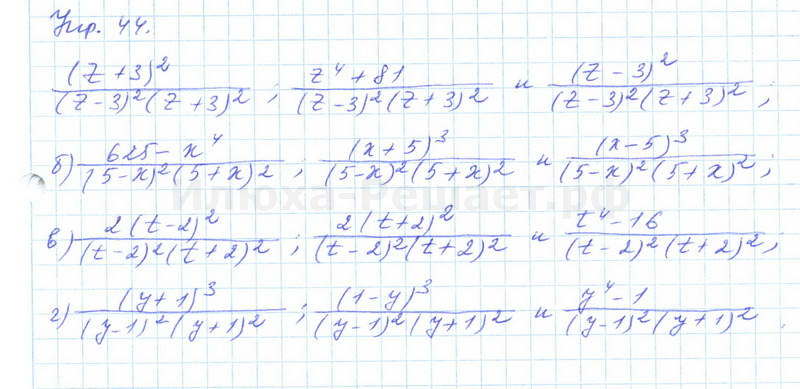 Упр. 44.
(z+3)² / (z-3)²(z+3)² ; z⁴+81 / (z-3)²(z+3)² и (z-3)² / (z-3)²(z+3)² ;
б) 625-x⁴ / (5-x)²(5+x)² ; (x+5)³ / (5-x)²(5+x)² и (x-5)³ / (5-x)²(5+x)² ;
Илюха-Решает.рф
в) 2(t-2)² / (t-2)²(t+2)² ; 2(t+2)² / (t-2)²(t+2)² и t⁴-16 / (t-2)²(t+2)² ;
г) (y+1)³ / (y-1)²(y+1)² ; (1-y)³ / (y-1)²(y+1)² и y⁴-1 / (y-1)²(y+1)² .